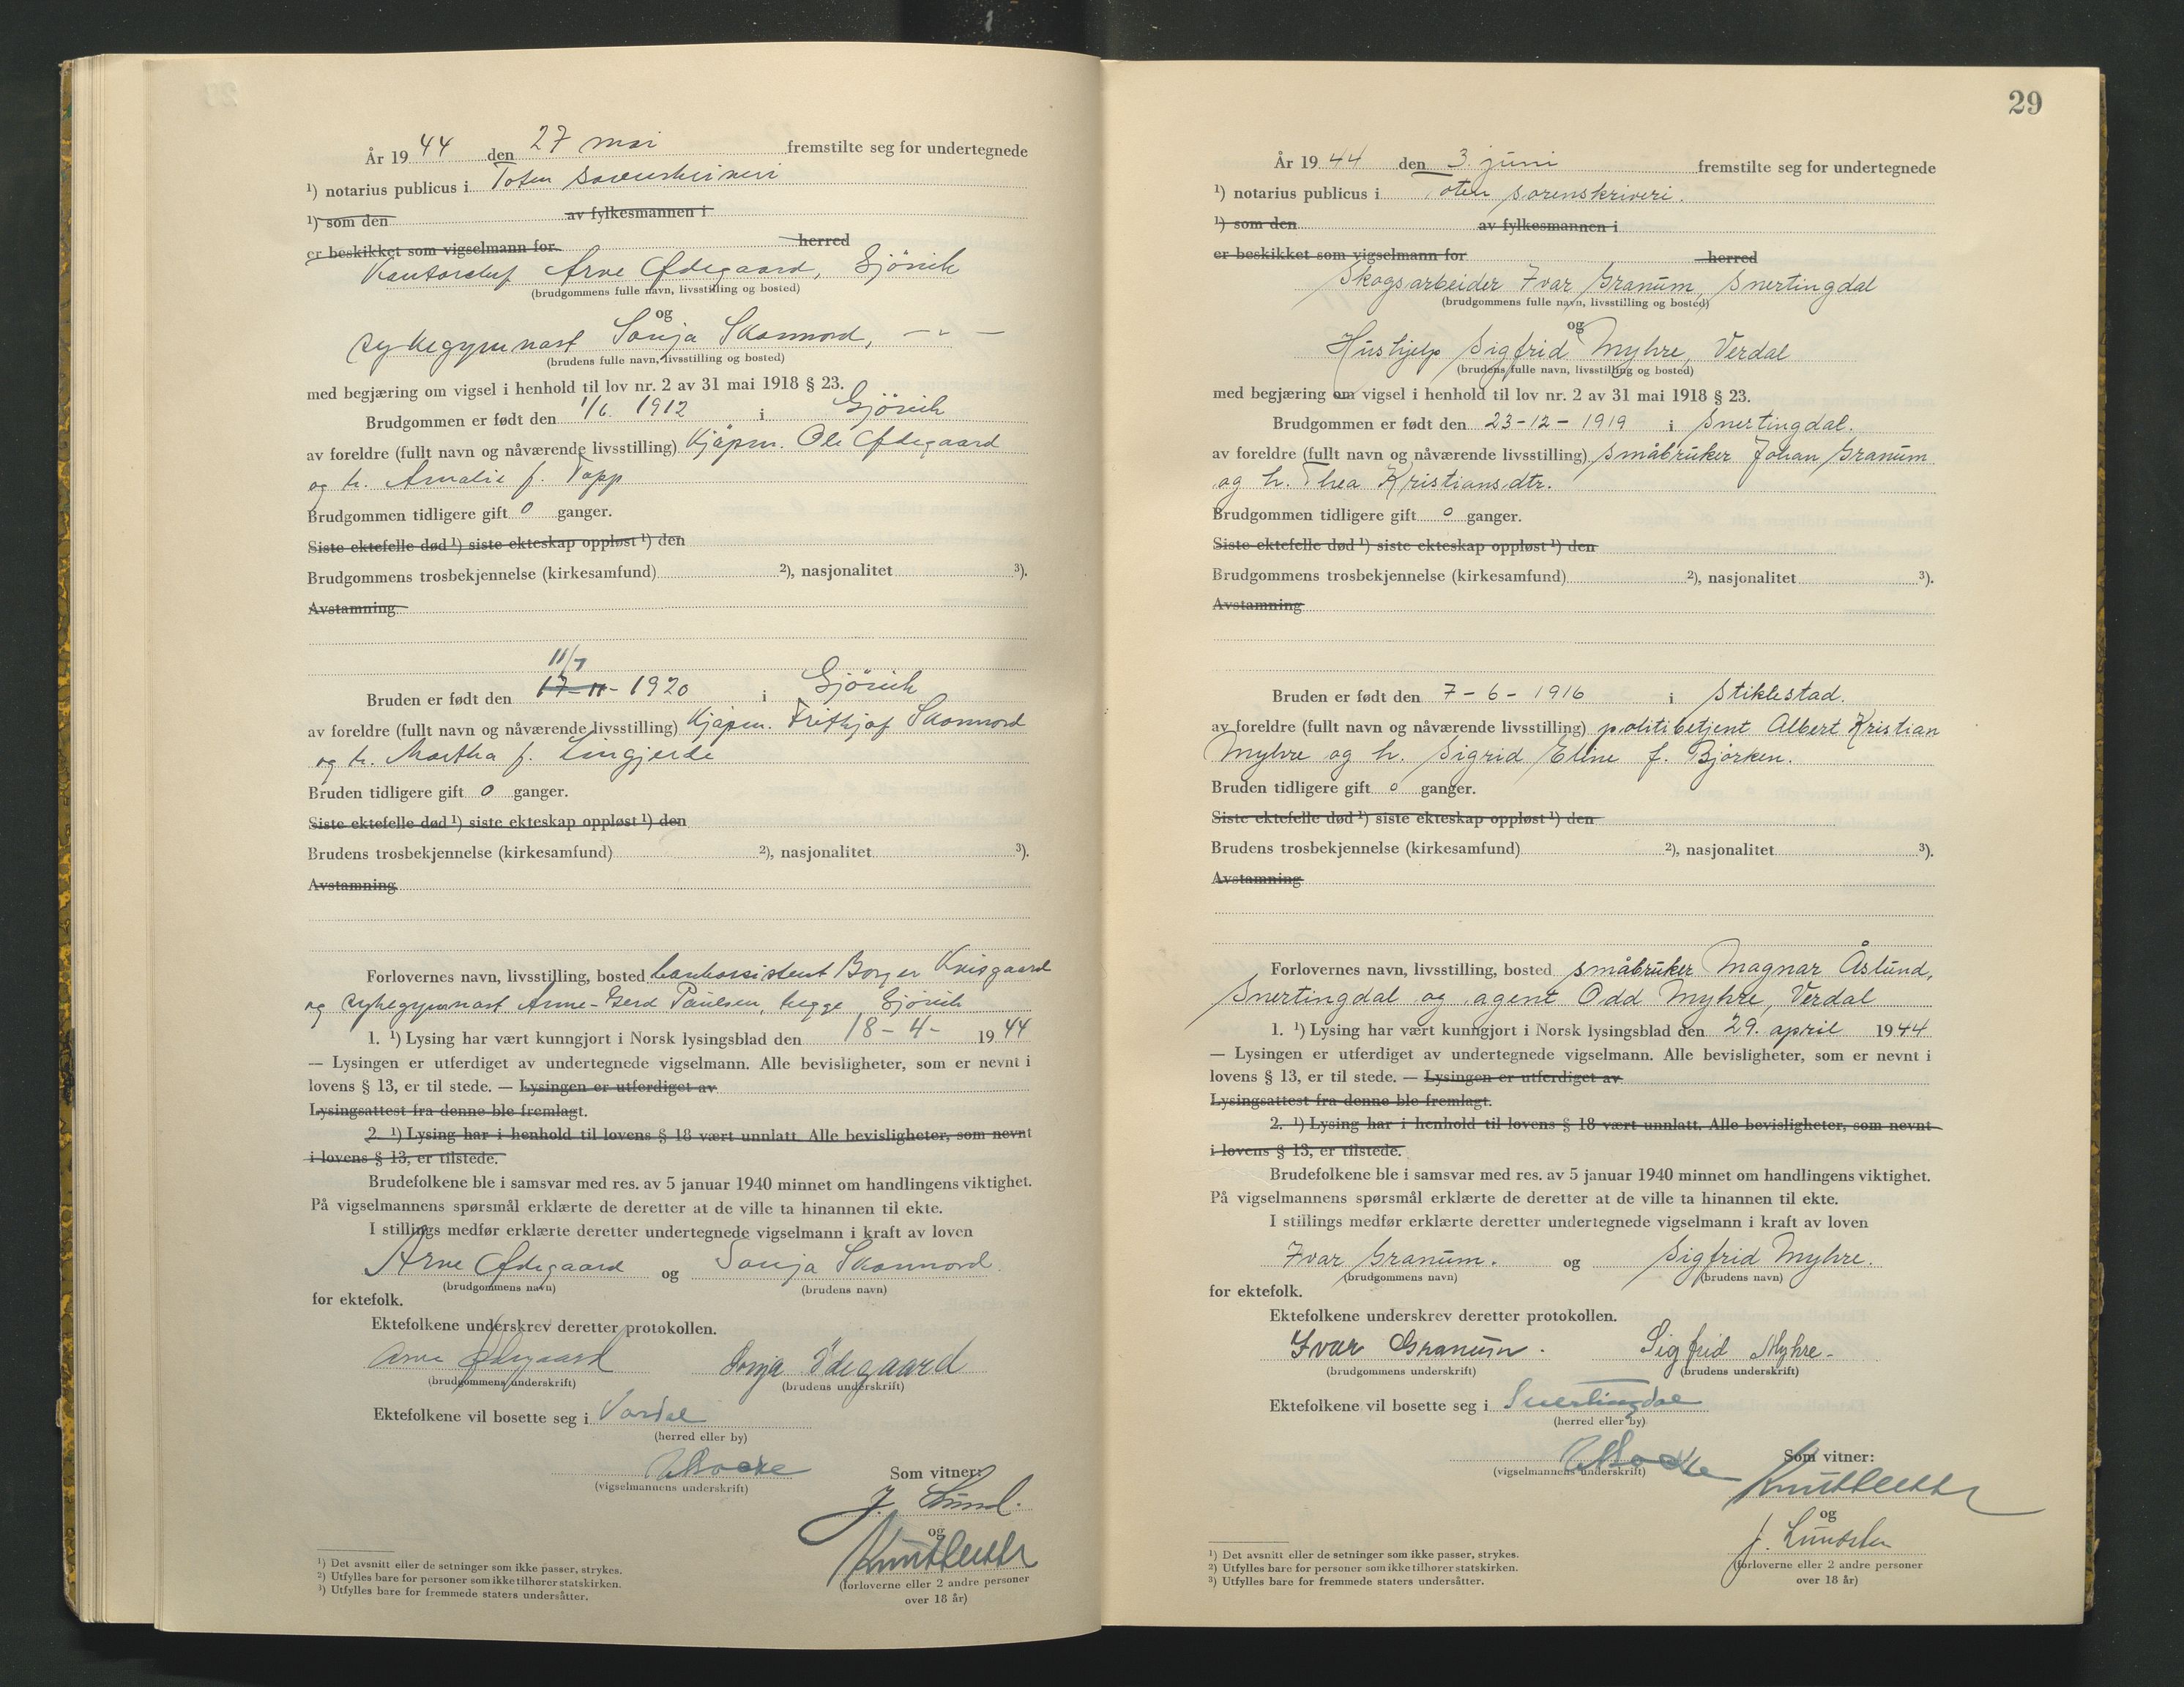 År 19 44 den 27 mai fremstilte seg for undertegnede
¹) notarius publicus i Toten sorenskriveri
¹) som den av fylkesmannen i
er beskikket som vigselmann for herred
Kontorchef Arne Ødegaard, Gjövik
(brudgommens fulle navn, livsstilling og bosted)
og
sykegymnast Sonja Skonnord, — " —
(brudens fulle navn, livsstilling og bosted)
med begjæring om vigsel i henhold til lov nr. 2 av 31 mai 1918 § 23.
Brudgommen er født den 1/6. 1912 i Gjövik
av foreldre (fullt navn og nåværende livsstilling) Kjøpm. Ole Ødegaard
og h. Amalie f. Topp
Brudgommen tidligere gift 0 ganger.
Siste ektefelle død ¹) siste ekteskap oppløst ¹) den
Brudgommens trosbekjennelse (kirkesamfund) ²), nasjonalitet ³).
Avstamning
11/7
Bruden er født den 17-11- 1920 i Gjövik
av foreldre (fullt navn og nåværende livsstilling) Kjøpm. Frithjof Skonnord
og h. Martha f. Lingjerde
Bruden tidligere gift 0 ganger.
Siste ektefelle død ¹) siste ekteskap oppløst ¹) den
Brudens trosbekjennelse (kirkesamfund) ²), nasjonalitet ³).
Avstamning
Forlovernes navn, livsstilling, bosted bankassistent Borger
og sykegymnast Anne-Gerd Paulsen, begge Gjövik
1. ¹) Lysing har vært kunngjort i Norsk lysingsblad den 18-4- 19 44
— Lysingen er utferdiget av undertegnede vigselmann. Alle bevisligheter, som er nevnt i
lovens § 13, er til stede. — Lysingen er utferdiget av
Lysingsattest fra denne ble fremlagt.
2. ¹) Lysing har i henhold til lovens § 18 vært unnlatt. Alle bevisligheter, som nevnt
i lovens § 13, er tilstede.
Brudefolkene ble i samsvar med res. av 5 januar 1940 minnet om handlingens viktighet.
På vigselmannens spørsmål erklærte de deretter at de ville ta hinannen til ekte.
I stillings medfør erklærte deretter undertegnede vigselmann i kraft av loven
Arne Ødegaard og Sonja Skonnord.
(brudgommens navn) (brudens navn)
for ektefolk.
Ektefolkene underskrev deretter protokollen.
Arne Ødegaard Sonja Ødegaard
(brudgommens underskrift) (brudens underskrift)
Ektefolkene vil bosette seg i Vardal
(herred eller by)
(vigselmannens underskrift)
Som vitner:
J. Lund.
og
(forloverne eller 2 andre personer
over 18 år)
¹) Det avsnitt eller de setninger som ikke passer, strykes.
²) Utfylles bare for personer som ikke tilhører statskirken.
³) Utfylles bare for fremmede staters undersåtter.
29
År 19 44 den 3. juni fremstilte seg for undertegnede
¹) notarius publicus i Toten sorenskriveri.
¹) som den av fylkesmannen i
er beskikket som vigselmann for herred
Skogsarbeider Ivar Granum, Snertingdal
(brudgommens fulle navn, livsstilling og bosted)
og
Hushjelp Sigfrid Myhre, Verdal
(brudens fulle navn, livsstilling og bosted)
med begjæring om vigsel i henhold til lov nr. 2 av 31 mai 1918 § 23.
Brudgommen er født den 23-12-1919 i Snertingdal.
av foreldre (fullt navn og nåværende livsstilling) småbruker Johan Granum
og h. Thea Kristiansdtr.
Brudgommen tidligere gift 0 ganger.
Siste ektefelle død ¹) siste ekteskap oppløst ¹) den
Brudgommens trosbekjennelse (kirkesamfund) ²), nasjonalitet ³).
Avstamning
Bruden er født den 7-6-1916 i Stiklestad.
av foreldre (fullt navn og nåværende livsstilling) politibetjent Albert Kristian
Myhre og h. Sigrid Eline f. Björken.
Bruden tidligere gift 0 ganger.
Siste ektefelle død ¹) siste ekteskap oppløst ¹) den
Brudens trosbekjennelse (kirkesamfund) ²), nasjonalitet ³).
Avstamning
Forlovernes navn, livsstilling, bosted småbruker Magnar Åslund,
Snertingdal og agent Odd Myhre, Verdal
1. ¹) Lysing har vært kunngjort i Norsk lysingsblad den 29. april 19 44
— Lysingen er utferdiget av undertegnede vigselmann. Alle bevisligheter, som er nevnt i
lovens § 13, er til stede. — Lysingen er utferdiget av
Lysingsattest fra denne ble fremlagt.
2. ¹) Lysing har i henhold til lovens § 18 vært unnlatt. Alle bevisligheter, som nevnt
i lovens § 13, er tilstede.
Brudefolkene ble i samsvar med res. av 5 januar 1940 minnet om handlingens viktighet.
På vigselmannens spørsmål erklærte de deretter at de ville ta hinannen til ekte.
I stillings medfør erklærte deretter undertegnede vigselmann i kraft av loven
Ivar Granum. og Sigfrid Myhre.
(brudgommens navn) (brudens navn)
for ektefolk.
Ektefolkene underskrev deretter protokollen.
Ivar Granum. Sigfrid Myhre.
(brudgommens underskrift) (brudens underskrift)
Ektefolkene vil bosette seg i Snertingdal
(herred eller by)
(vigselmannens underskrift)
Som vitner:
og
(forloverne eller 2 andre personer
over 18 år)
¹) Det avsnitt eller de setninger som ikke passer, strykes.
²) Utfylles bare for personer som ikke tilhører statskirken.
³) Utfylles bare for fremmede staters undersåtter.